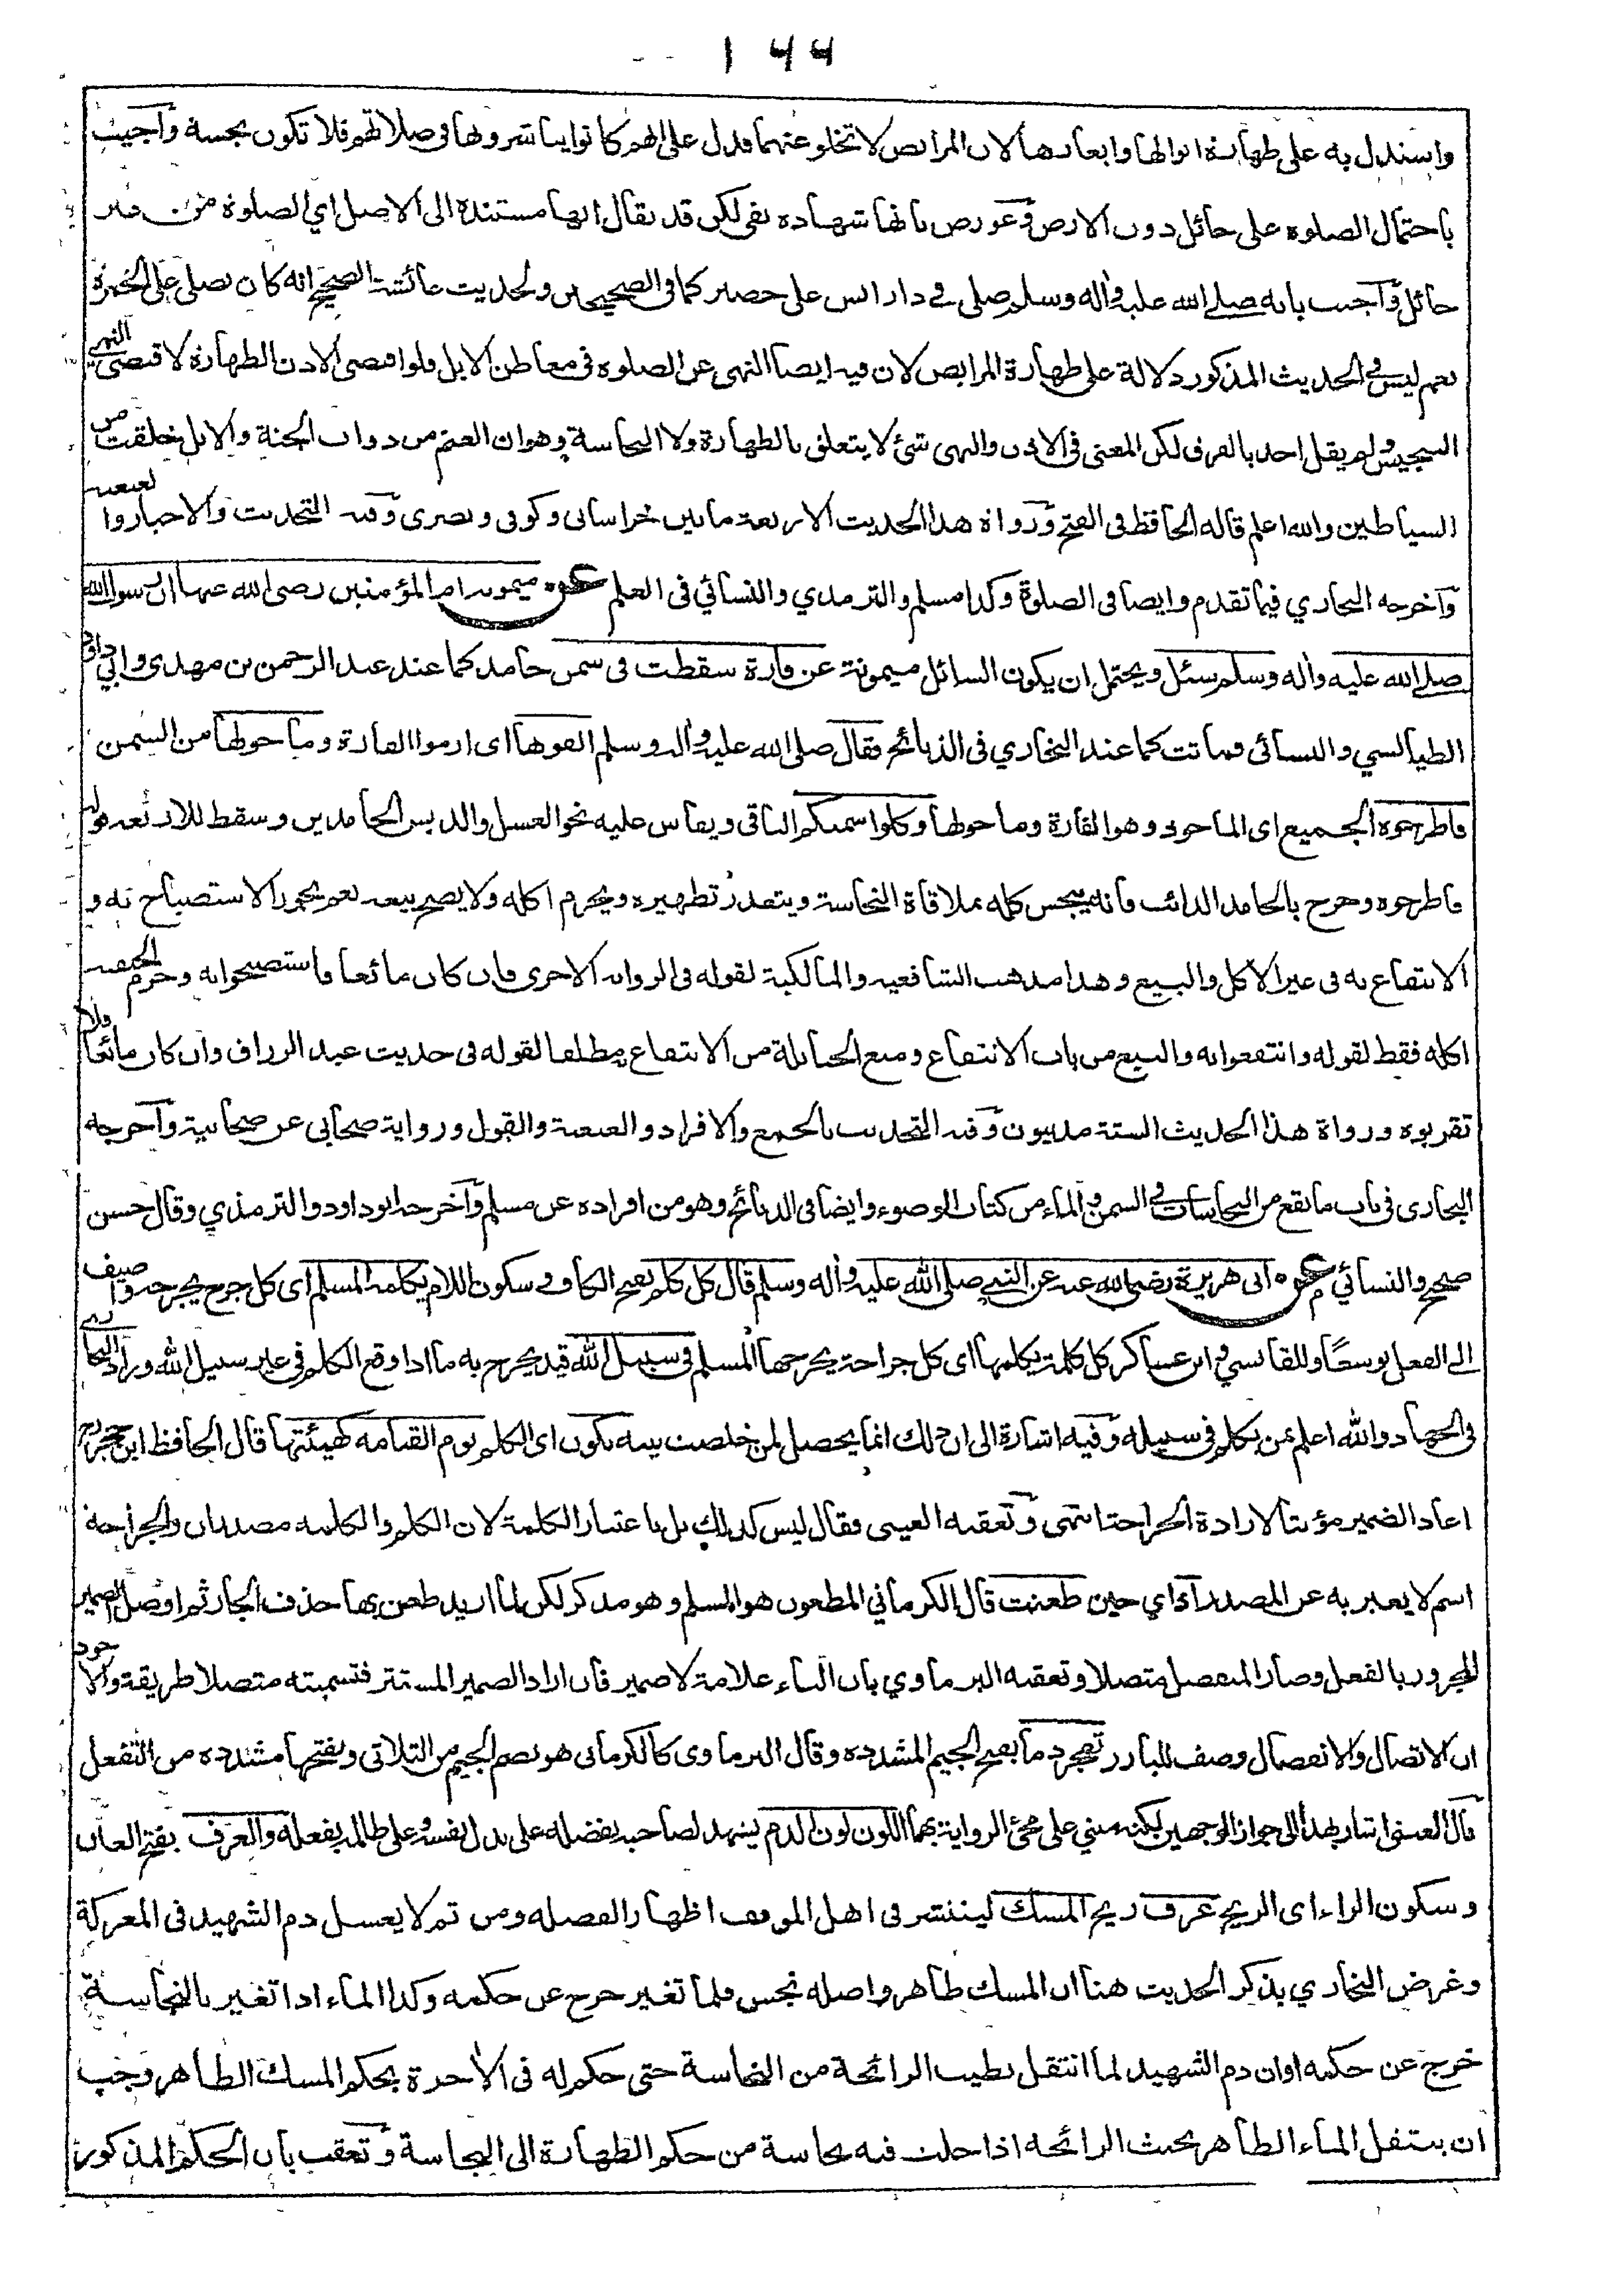 ١٦٦
واستدل به على طهارة ابوالها وابعارها لان المرابض لا تخلو عنهما فدل على انهم كانوا يباشرونها في صلاتهم فلا تكون نجسة وأجيب
باحتمال الصلوة على حائل دون الارض وعورض بانها شهادة نفي لكن قد يقال انها مستندة الى الاصل اي الصلوة من غير
حائل وأجيب بانه صلى الله عليه وآله وسلم صلى في دار انس على حصير كما في الصحيحين ولحديث عائشة الصحيح انه كان يصلي على الخمرة
نعم ليس في الحديث المذكور دلالة على طهارة المرابض لان فيه ايضا النهي عن الصلوة في معاطن الابل فلو اقتضى الاذن الطهارة لاقتضى النهي
التنجيس ولم يقل احد بالفرق لكن المعنى في الاذن والنهي شئ لا يتعلق بالطهارة ولا النجاسة وهو ان الغنم من دواب الجنة والابل خلقت من
الشياطين والله اعلم قاله الحافظ في الفتح ورواة هذا الحديث الاربعة ما بين خراساني وكوفي وبصري وفيه التحديث والاخبار والعنعنة
وأخرجه البخاري فيما تقدم وايضا في الصلوة وكذا مسلم والترمذي والنسائي في العلم عن ميمونة ام المؤمنين رضى الله عنها ان رسول الله
صلى الله عليه وآله وسلم سئل ويحتمل ان يكون السائل ميمونة عن فارة سقطت في سمن جامد كما عند عبد الرحمن بن مهدي وابي داود
الطيالسي والنسائي فماتت كما عند البخاري في الذبائح فقال صلى الله عليه وآله وسلم القوها اى ارموا الفارة وما حولها من السمن
فاطرحوه الجميع اى الماخوذ وهو الفارة وما حولها وكلوا سمنكم الباقي ويقاس عليه نحو العسل والدبس الجامدين وسقط للاربعة قوله
فاطرحوه وخرج بالجامد الذائب فانه ينجس كله بملاقاة النجاسة ويتعذر تطهيره ويحرم اكله ولا يصح بيعه نعم يجوز الاستصباح به و
الانتفاع به في غير الاكل والبيع وهذا مذهب الشافعية والمالكية لقوله في الرواية الاخرى فان كان مائعا فاستصبحوا به وحرم الحنفية
اكله فقط لقوله وانتفعوا به والبيع من باب الانتفاع ومنع الحنابلة من الانتفاع به مطلقا لقوله في حديث عبد الرزاق وان كان مائعا فلا
تقربوه ورواة هذا الحديث الستة مدنيون وفيه التحديث بالجمع والافراد والعنعنة والقول ورواية صحابي عن صحابية وأخرجه
البخارى في باب ما يقع من النجاسات في السمن والماء من كتاب الوضوء وايضا في الذبائح وهو من افراده عن مسلم وأخرجه ابو داود والترمذي وقال حسن
صحيح والنسائي عن ابي هريرة رضى الله عنه عن النبي صلى الله عليه وآله وسلم قال كل كلم بفتح الكاف وسكون اللام يكلمه المسلم اى كل جرح يجرحه واضيف
الى الفعل توسعًا وللقابسي وابن عساكر كل كلمة يكلمها اى كل جراحة يجرحها المسلم في سبيل الله قيد يخرج به ما اذا وقع الكلم في غير سبيل الله وزاد البخاري
في الجهاد والله اعلم بمن يكلم في سبيله وفيه اشارة الى ان ذلك انما يحصل لمن خلصت نيته يكون اى الكلم يوم القيامة كهيئتها قال الحافظ ابن حجر رح
اعاد الضمير مؤنثا لارادة الجراحة انتهى وتعقبه العيني فقال ليس كذلك بل باعتبار الكلمة لان الكلم والكلمة مصدران والجراحة
اسم لا يعبر به عن المصدر اذ اي حين طعنت قال الكرماني المطعون هو المسلم وهو مذكر لكن لما اريد طعن بها حذف الجار ثم اوصل الضمير
المجرور بالفعل وصار المنفصل متصلا وتعقبه البرماوي بان التاء علامة لا ضمير فان اراد الضمير المستتر فتسميته متصلا طريقة والاجود
ان الاتصال والانفصال وصف للبارز تفجر دما بفتح الجيم المشددة وقال البرماوى كالكرماني هو بضم الجيم من الثلاثي وبفتحها مشددة من التفعل
قال العيني اشار بهذا الى جواز الوجهين لكنه مبني على مجئ الرواية بهما اللون لون الدم يشهد لصاحبه بفضله على بذل نفسه وعلى ظالمه بفعله والعرف بفتح العين
وسكون الراء اى الريح عرف ريح المسك لينتشر في اهل الموقف اظهارا لفضله ومن ثم لا يغسل دم الشهيد في المعركة
وغرض البخاري بذكر الحديث هنا ان المسك طاهر واصله نجس فلما تغير خرج عن حكمه وكذا الماء اذا تغير بالنجاسة
خرج عن حكمه او ان دم الشهيد لما انتقل بطيب الرائحة من النجاسة حتى حكم له في الآخرة بحكم المسك الطاهر وجب
ان ينتقل الماء الطاهر بخبث الرائحة اذا حلت فيه نجاسة من حكم الطهارة الى النجاسة وتعقب بان الحكم المذكور